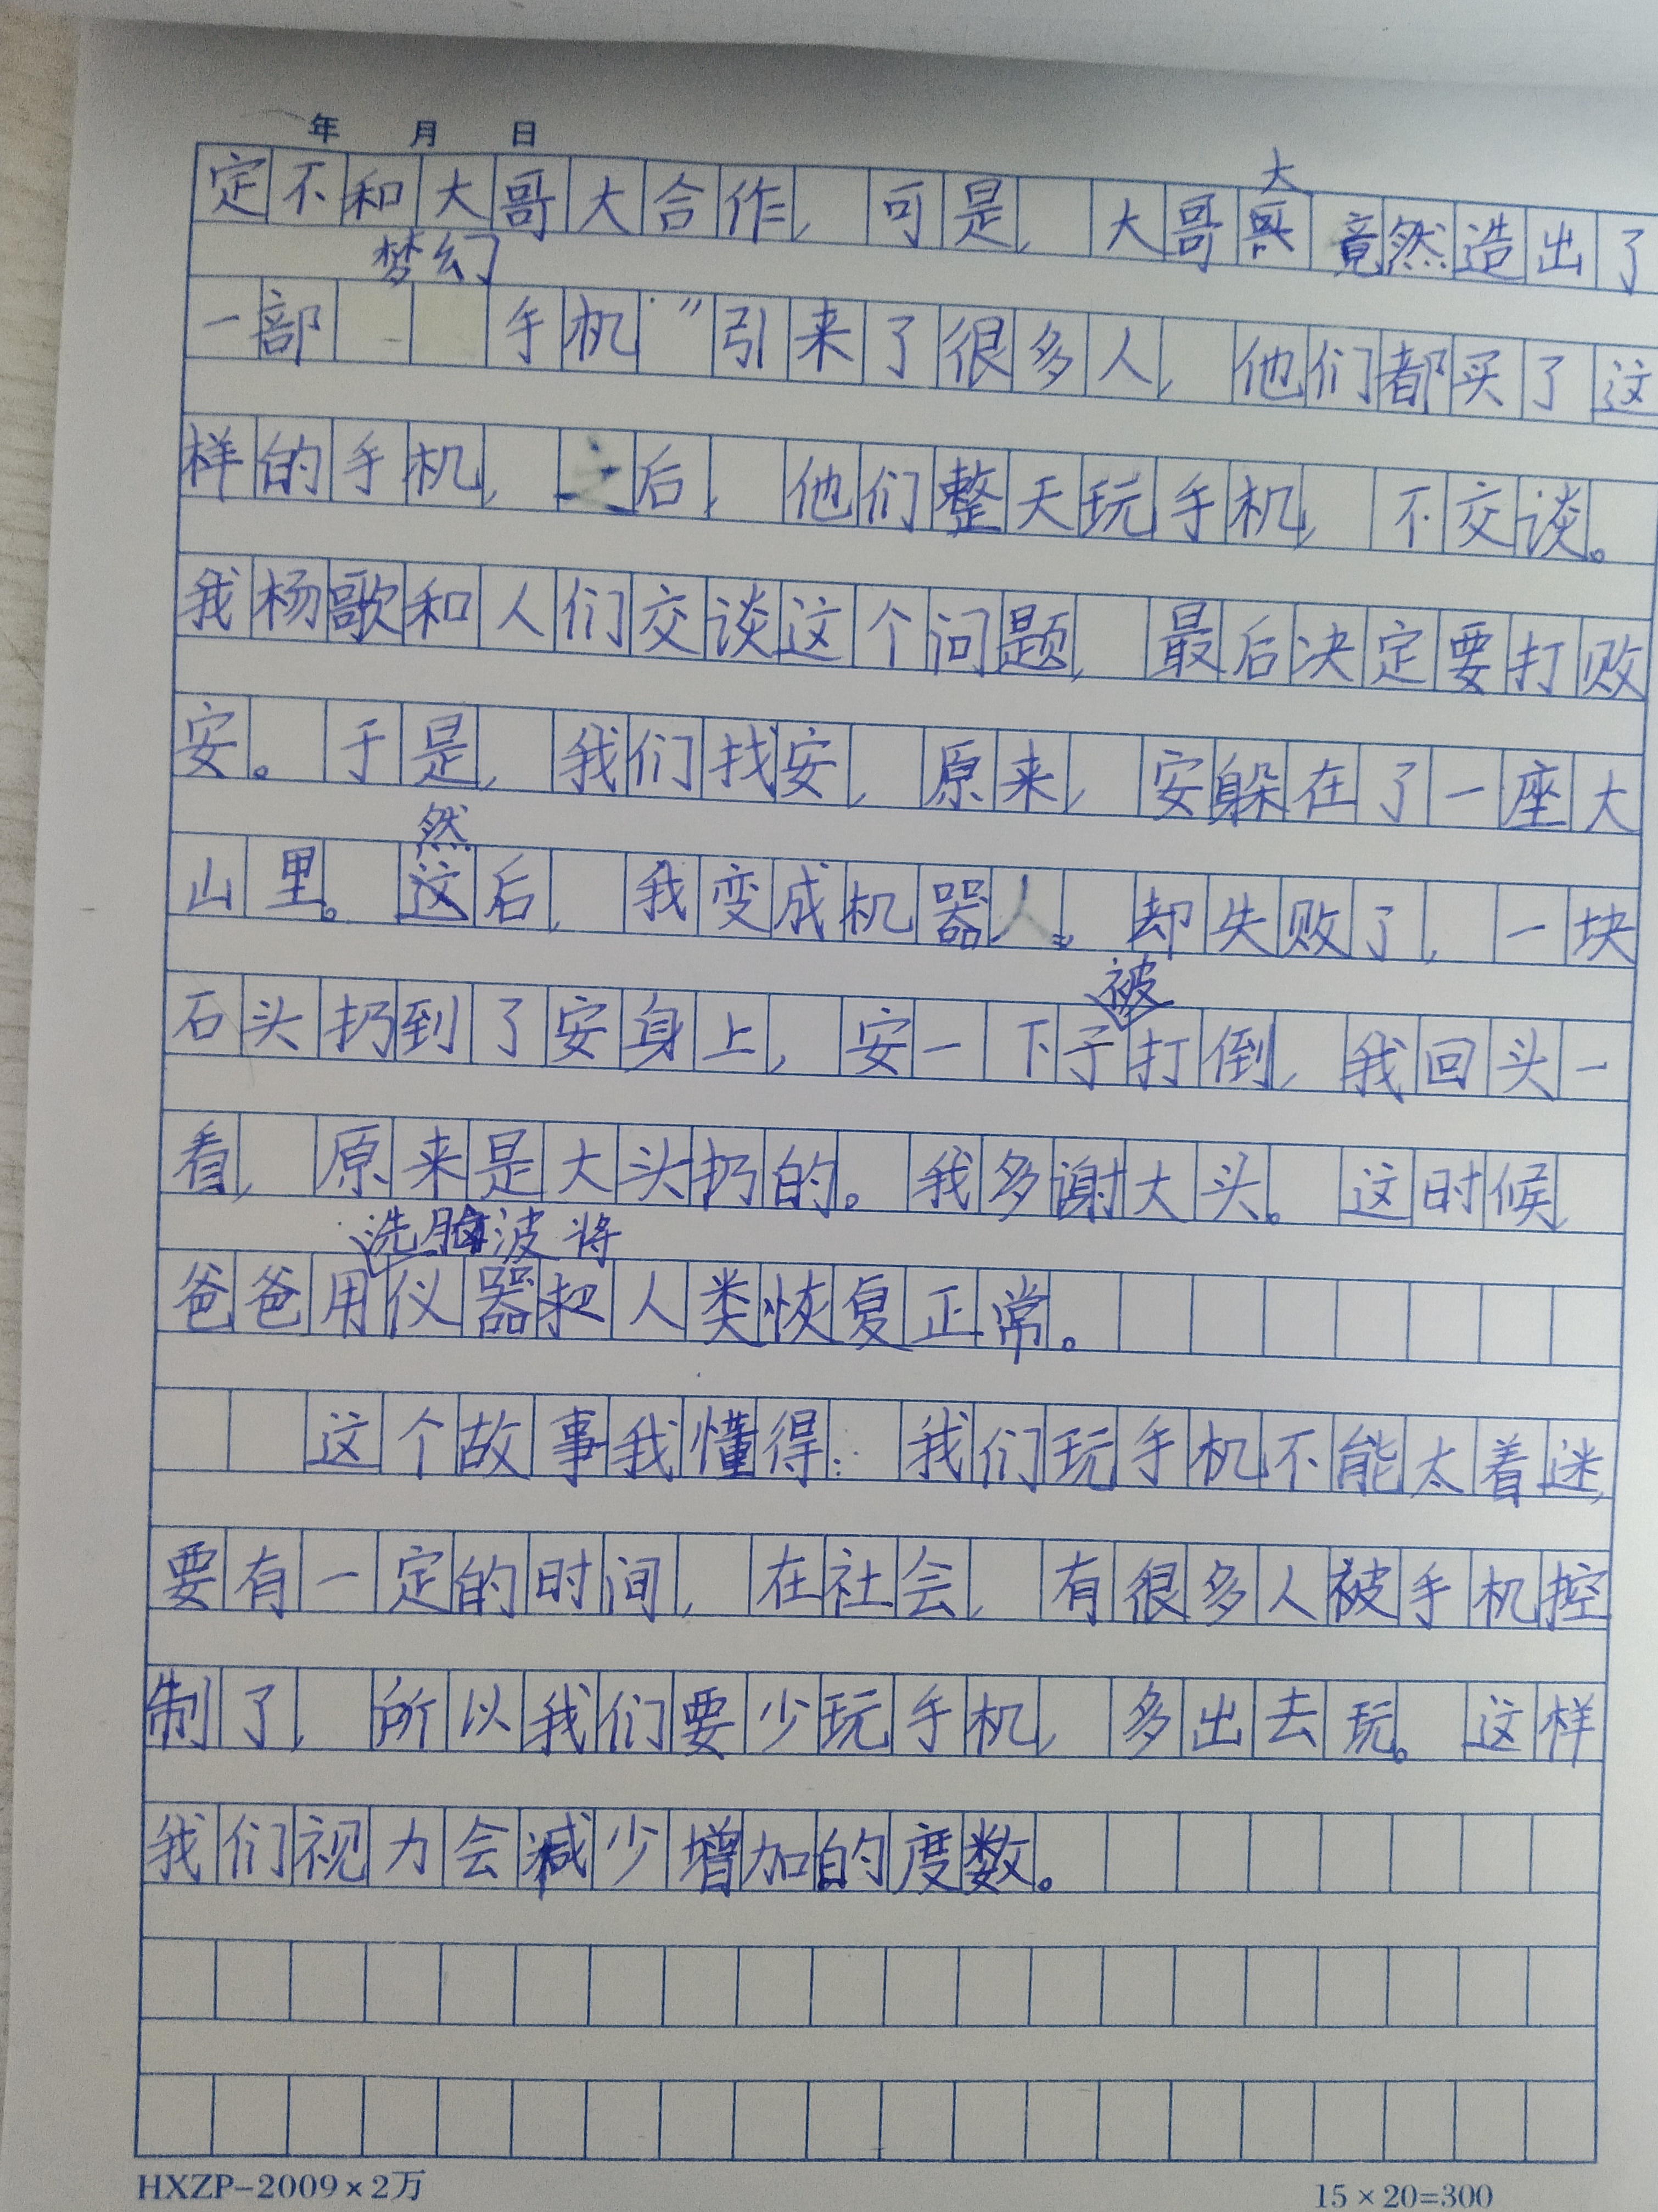 年 月 日
定不和大哥大合作，可是，大哥大竟然造出了
一部梦幻手机”引来了很多人，他们都买了这
样的手机，之后，他们整天玩手机，不交谈。
我杨歌和人们交谈这个问题，最后决定要打败
安。于是，我们找安，原来，安躲在了一座大
山里。然后，我变成机器人。却失败了，一块
石头扔到了安身上，安一下子被打倒，我回头一
看，原来是大头扔的。我多谢大头。这时候，
爸爸用洗脑波仪器将人类恢复正常。
这个故事我懂得：我们玩手机不能太着迷，
要有一定的时间，在社会，有很多人被手机控
制了，所以我们要少玩手机，多出去玩。这样
我们视力会减少增加的度数。
HXZP-2009×2万 15×20=300